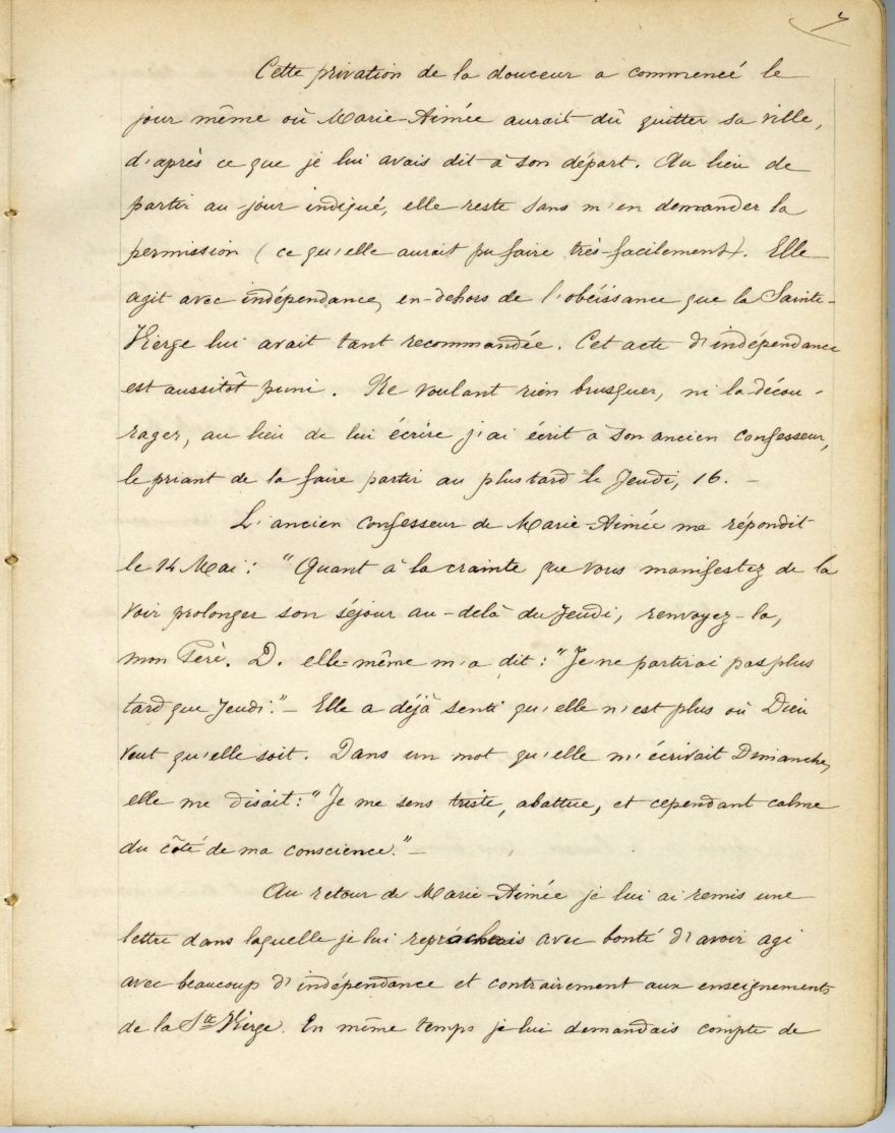 7
Cette privation de la douceur a commencé le
jour même où Marie-Aimée aurait dû quitter sa ville,
d'après ce que je lui avais dit à son départ. Au lieu de
partir au jour indiqué, elle reste sans m'en demander la
permission (ce qu'elle aurait pu faire très-facilement). Elle
agit avec indépendance, en-dehors de l'obéissance que la Sainte-
Vierge lui avait tant recommandée. Cet acte d'indépendance
est aussitôt puni. Ne voulant rien brusquer, ni la décou-
rager, au lieu de lui écrire j'ai écrit à son ancien confesseur,
le priant de la faire partir au plus tard le Jeudi, 16. -
L'ancien confesseur de Marie-Aimée me répondit
le 14 Mai: "Quant à la crainte que vous manifestez de la
voir prolonger son séjour au-delà du Jeudi, renvoyez-la,
mon Père. D. elle-même m'a dit: "Je ne partirai pas plus
tard que Jeudi." - Elle a déjà senti qu'elle n'est plus où Dieu
veut qu'elle soit. Dans un mot qu'elle m'écrivait Dimanche,
elle me disait: "Je me sens triste, abattue, et cependant calme
du côté de ma conscience." -
Au retour de Marie-Aimée je lui ai remis une
lettre dans laquelle je lui reprochais avec bonté d'avoir agi
avec beaucoup d'indépendance et contrairement aux enseignements
de la Ste Vierge. En même temps je lui demandais compte de